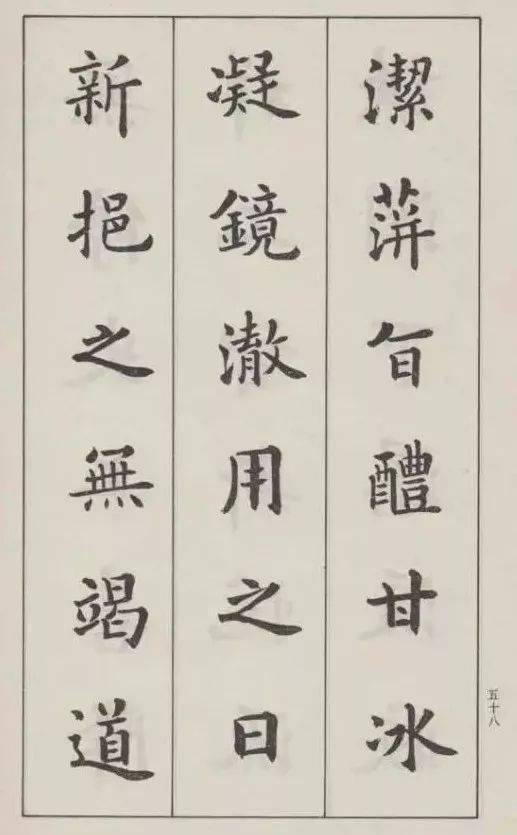 潔蓱旨醴甘冰
凝鏡澈用之日
新挹之無竭道
五十八